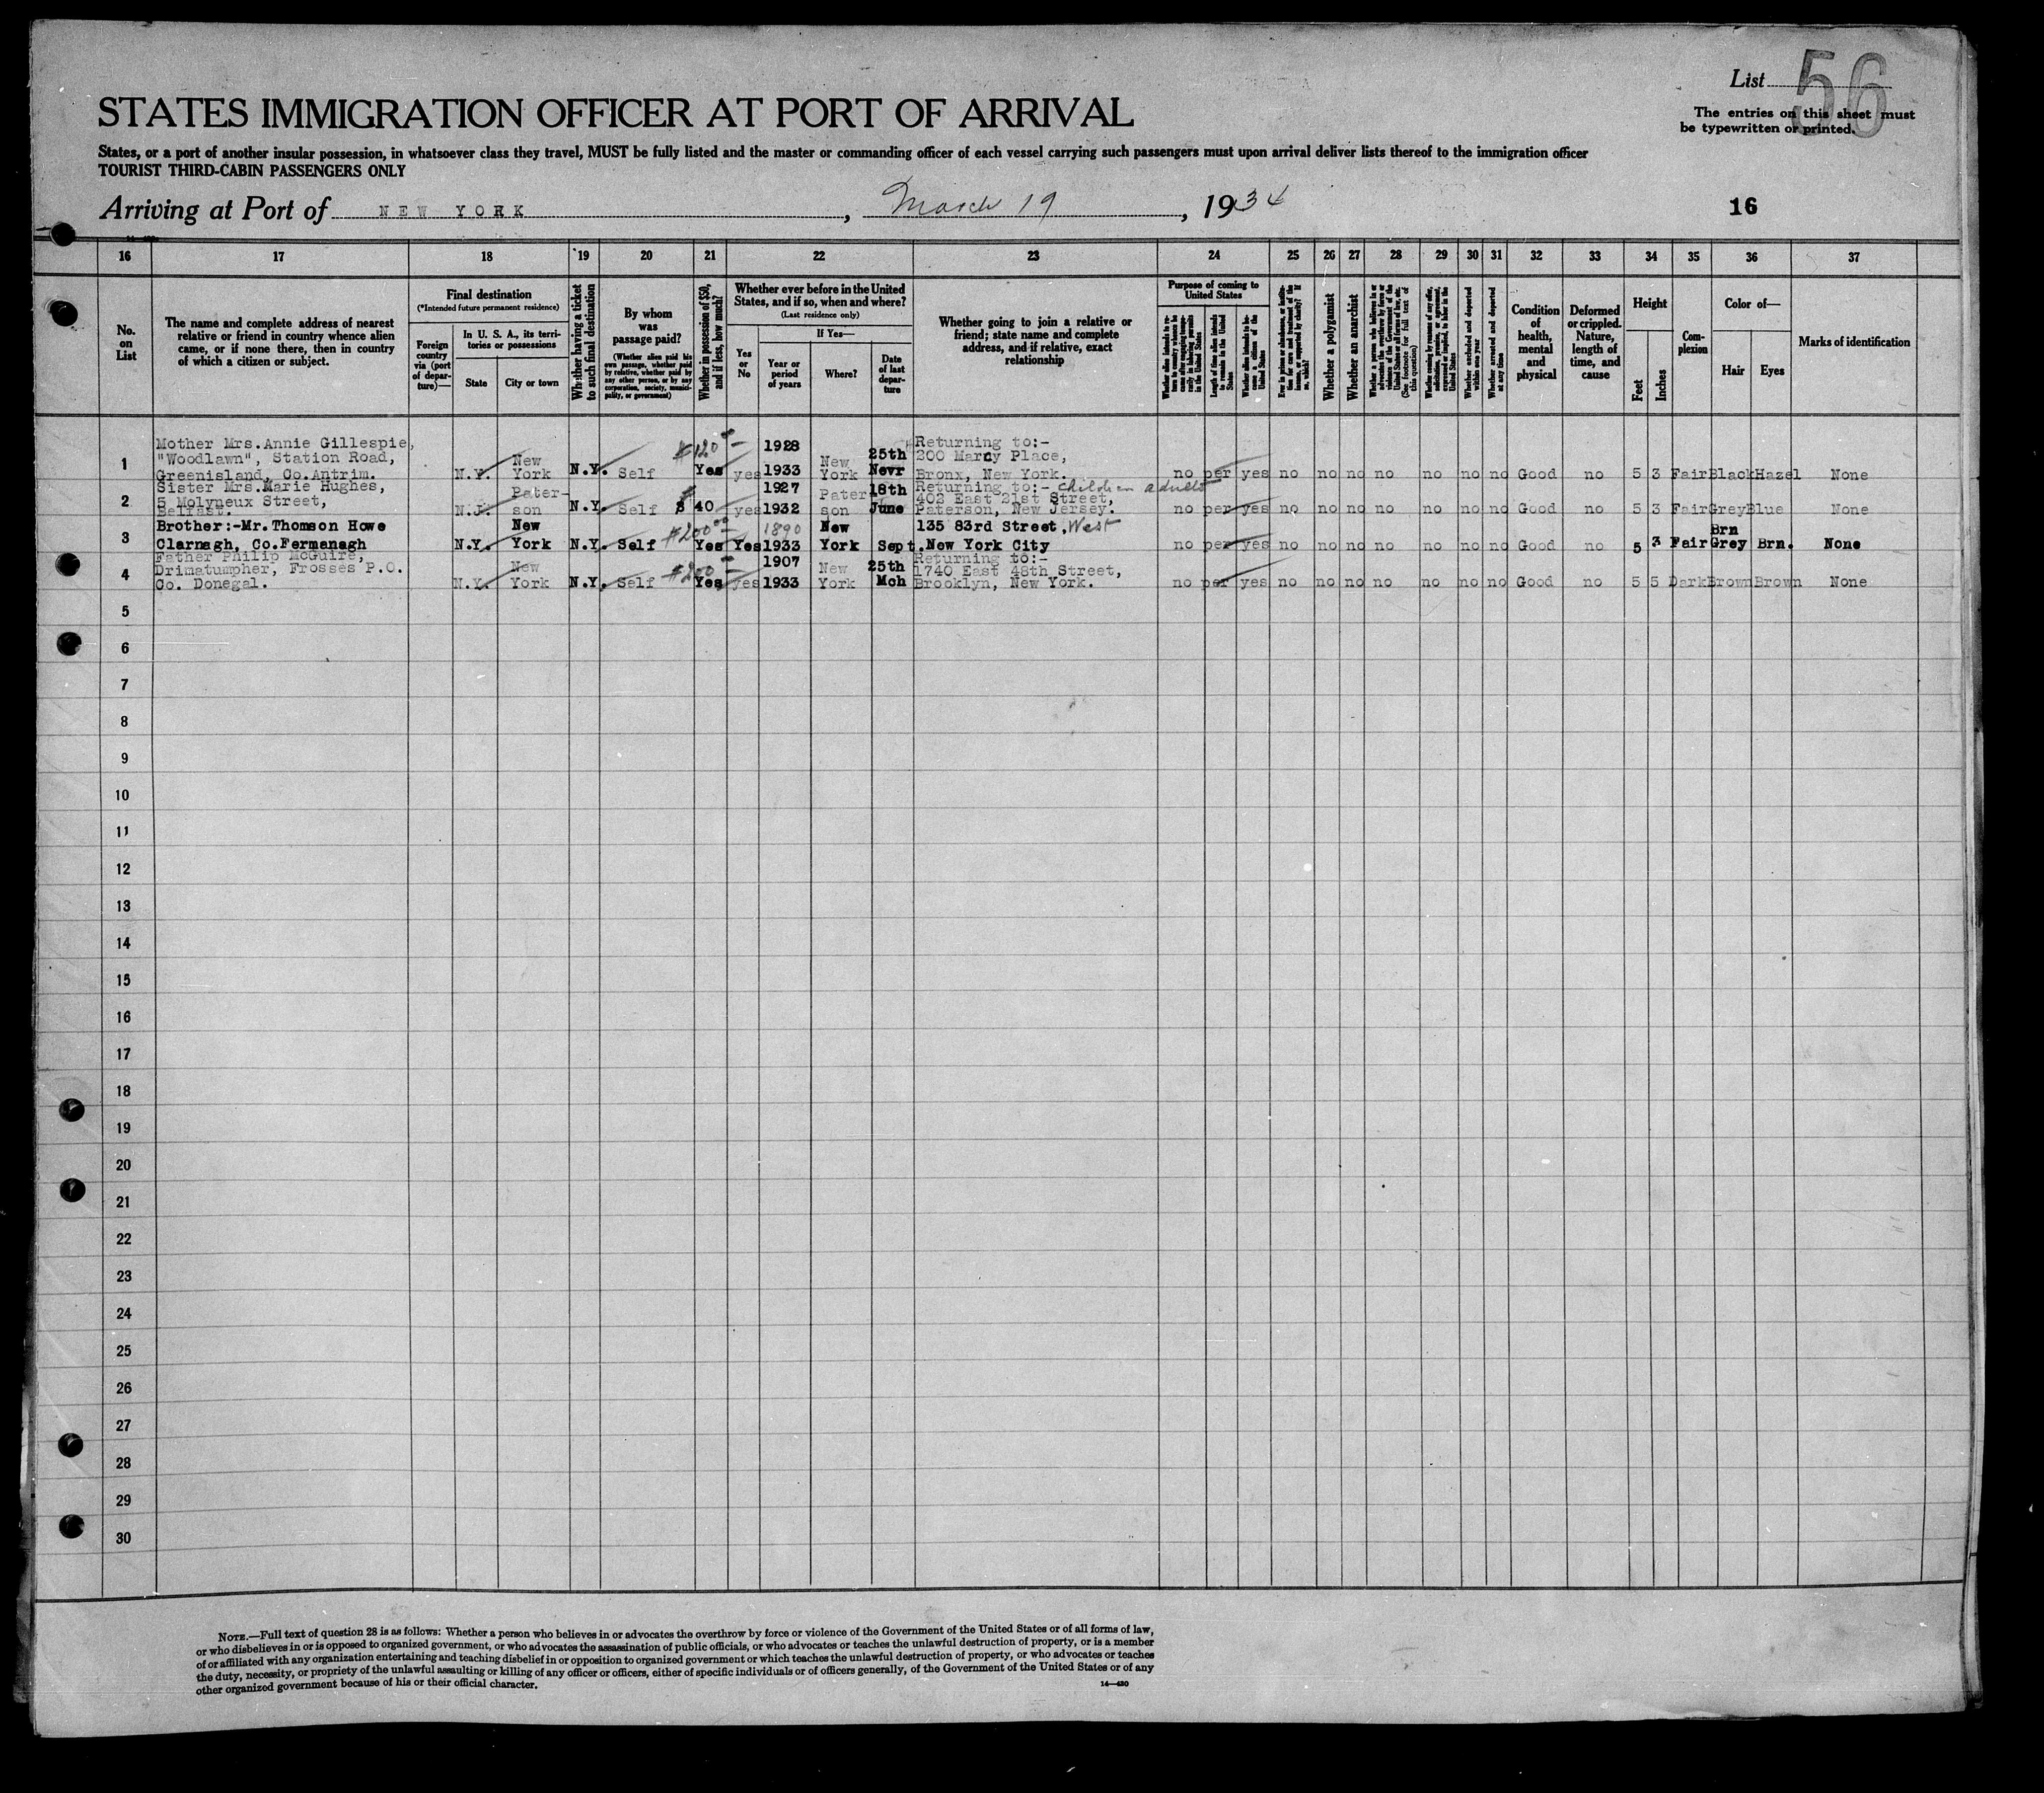 List 56
STATES IMMIGRATION OFFICER AT PORT OF ARRIVAL
The entries on this sheet must
be typewritten or printed.
States, or a port of another insular possession, in whatsoever class they travel, MUST be fully listed and the master or commanding officer of each vessel carrying such passengers must upon arrival deliver lists thereof to the immigration officer
TOURIST THIRD-CABIN PASSENGERS ONLY
Arriving at Port of NEW YORK, March 19, 1934
16
16 17 18 19 20 21 22 23 24 25 26 27 28 29 30 31 32 33 34 35 36 37
No.
on
List
The name and complete address of nearest
relative or friend in country whence alien
came, or if none there, then in country
of which a citizen or subject.
Final destination
(*Intended future permanent residence)
Foreign
country
via (port
of depar-
ture)—
In U. S. A., its terri-
tories or possessions
State
City or town
Whether having a ticket
to such final destination
By whom
was
passage paid?
(Whether alien paid his
own passage, whether paid
by relative, whether paid by
any other person, or by any
corporation, society, munici-
pality, or government)
Whether in possession of $50,
and if less, how much?
Whether ever before in the United
States, and if so, when and where?
(Last residence only)
Yes
or
No
If Yes—
Year or
period
of years
Where?
Date
of last
depar-
ture
Whether going to join a relative or
friend; state name and complete
address, and if relative, exact
relationship
Purpose of coming to
United States
Length of time alien intends
to remain in the United
States
Whether alien intends to be-
come a citizen of the
United States
Whether a polygamist
Whether an anarchist
Whether excluded and deported
within one year
Whether arrested and deported
at any time
Condition
of
health,
mental
and
physical
Deformed
or crippled.
Nature,
length of
time, and
cause
Height
Feet
Inches
Com-
plexion
Color of—
Hair
Eyes
Marks of identification
Mother Mrs. Annie Gillespie, #120 1928 Returning to:-
"Woodlawn", Station Road, New 25th 200 Marcy Place,
1 Greenisland, Co.Antrim. N.Y. York N.Y. Self Yes yes 1933 New York Nevr Bronx, New York. no per yes no no no no no no no Good no 5 3 Fair Black Hazel None
Sister Mrs. Marie Hughes, 1927 18th Returning to:- Children adults
5 Molyneux Street, Pater- Pater 402 East 21st Street,
2 Belfast. N.J. son N.Y. Self $ 40 yes 1932 son June Paterson, New Jersey. no per yes no no no no no no no Good no 5 3 Fair Grey Blue None
Brother:-Mr. Thomson Howe New #200 1890 New 135 83rd Street, West Brn
3 Clarnagh, Co.Fermanagh N.Y. York N.Y. Self Yes Yes 1933 York Sept. New York City no per yes no no no no no no no Good no 5 3 Fair Grey Brn. None
Father Philip McGuire, 1907 Returning to:-
Drimatumpher, Frosses P.O. New #200 New 25th 1740 East 48th Street,
4 Co. Donegal. N.Y. York N.Y. Self Yes Yes 1933 York Mch Brooklyn, New York. no per yes no no no no no no no Good no 5 5 Dark Brown Brown None
5
6
7
8
9
10
11
12
13
14
15
16
17
18
19
20
21
22
23
24
25
26
27
28
29
30
NOTE.—Full text of question 28 is as follows: Whether a person who believes in or advocates the overthrow by force or violence of the Government of the United States or of all forms of law,
or who disbelieves in or is opposed to organized government, or who advocates the assassination of public officials, or who advocates or teaches the unlawful destruction of property, or is a member
of or affiliated with any organization entertaining and teaching disbelief in or opposition to organized government or which teaches the unlawful destruction of property, or who advocates or teaches
the duty, necessity, or propriety of the unlawful assaulting or killing of any officer or officers, either of specific individuals or of officers generally, of the Government of the United States or of any
other organized government because of his or their official character.
14—430